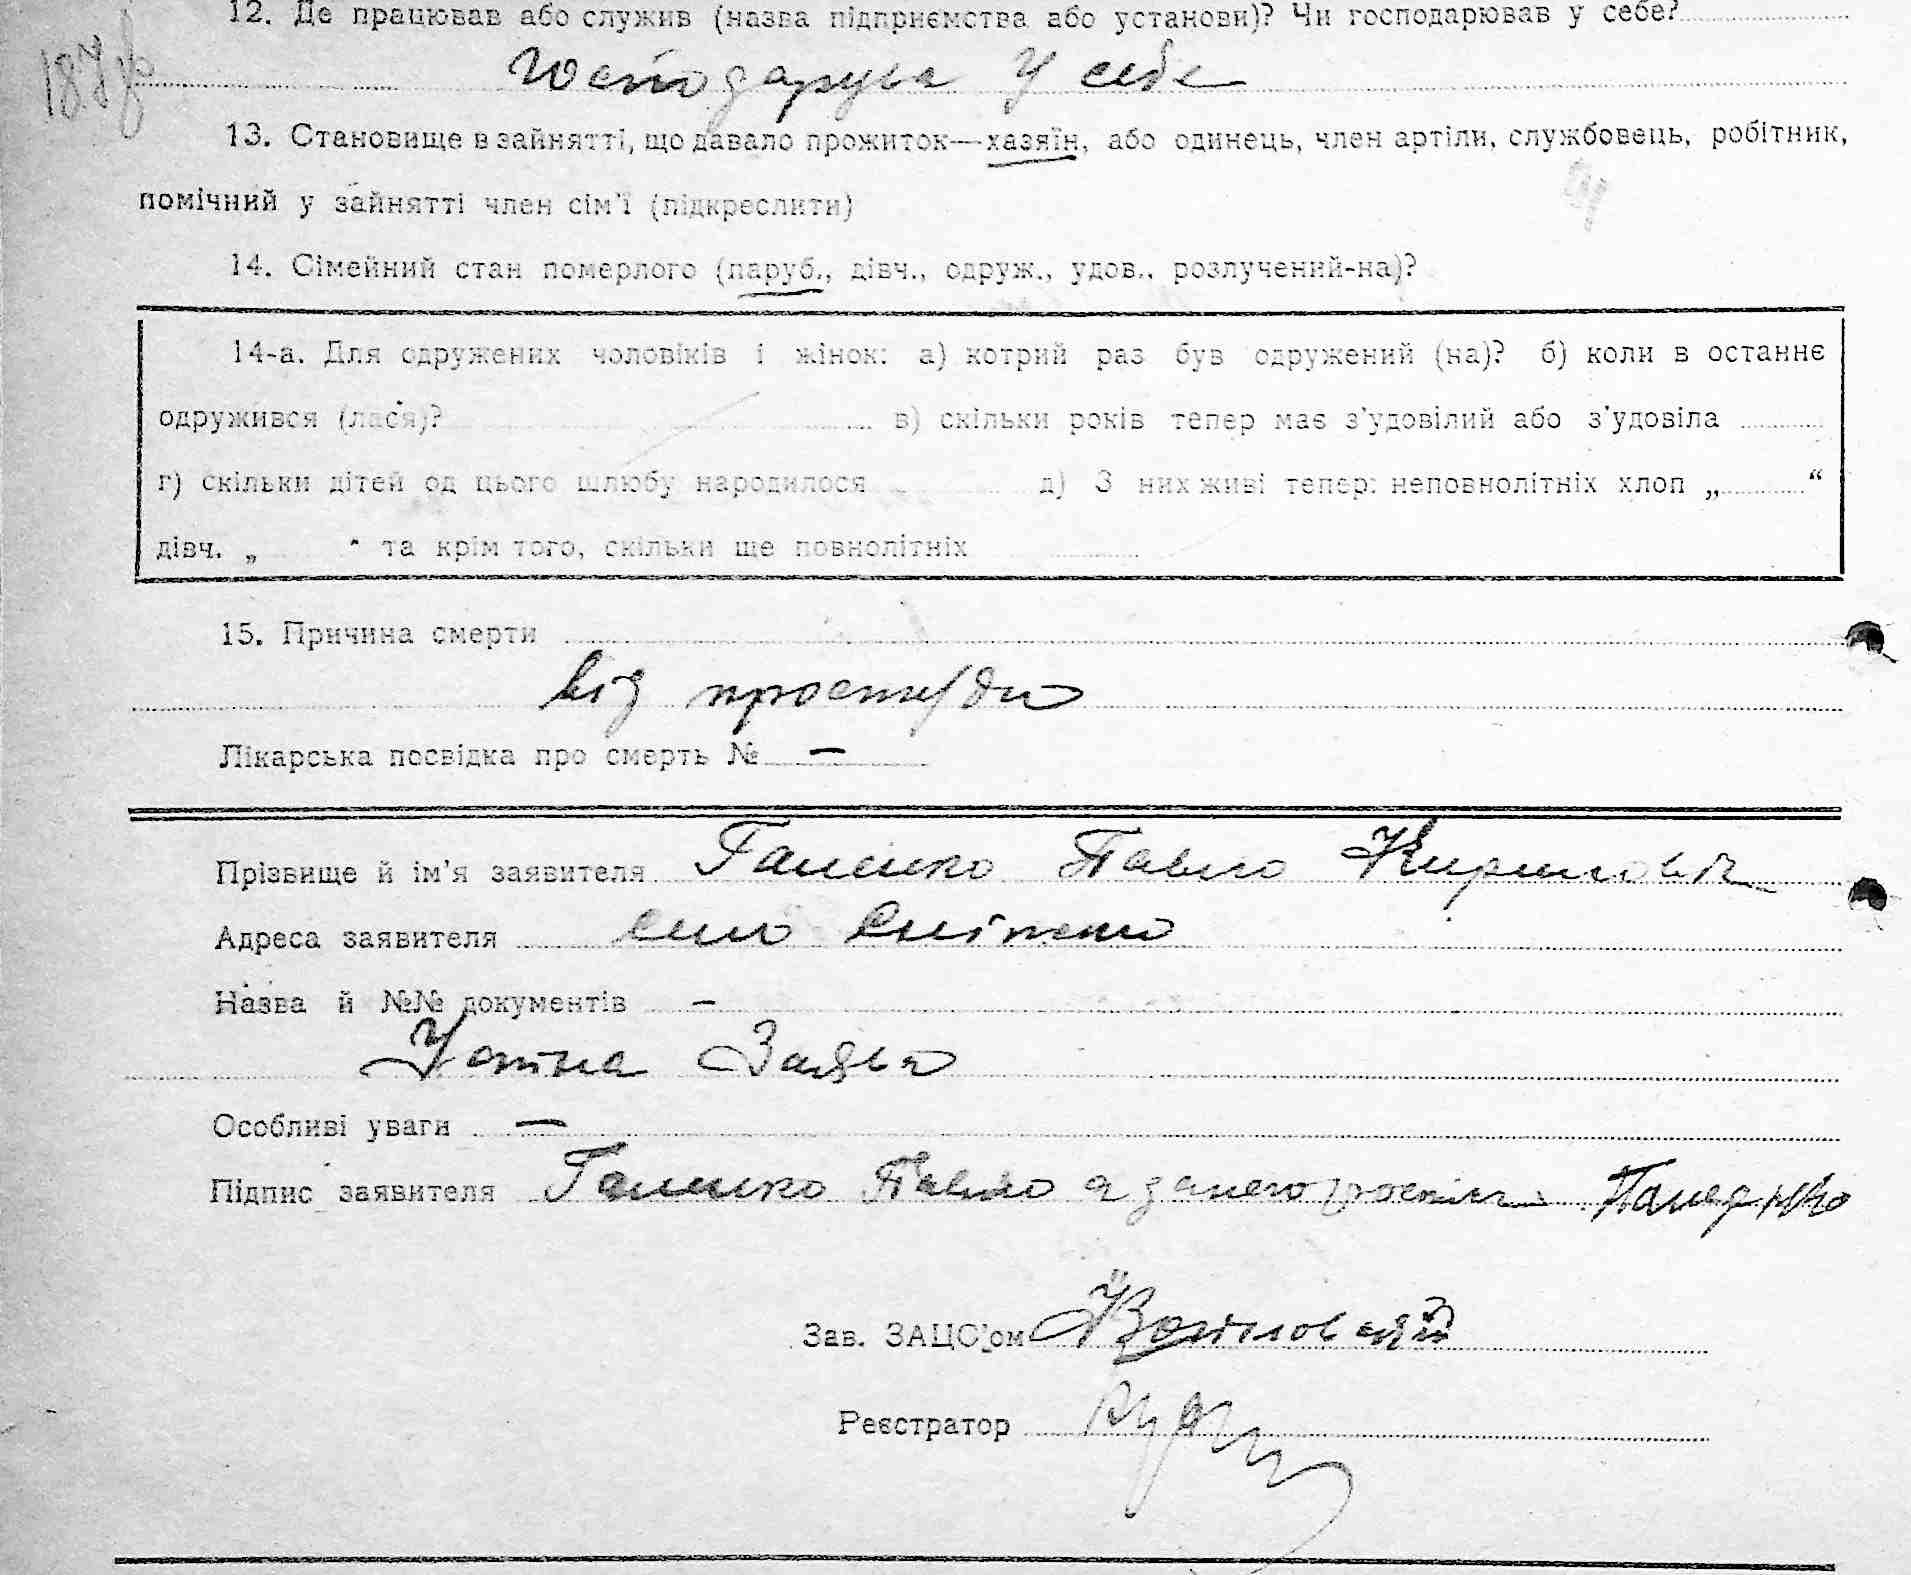 12. Де працював або служив (назва підприємства або установи)? Чи господарював у себе?
у себе
13. Становище в зайнятті, що давало прожиток—хазяїн, або одинець, член артіли, службовець, робітник,
помічний у зайнятті член сім'ї (підкреслити)
14. Сімейний стан померлого (паруб., дівч., одруж., удов., розлучений-на)?
14-а. Для одружених чоловіків і жінок: а) котрий раз був одружений (на)? б) коли в останнє
одружився (лася)? в) скільки років тепер має з'удовілий або з'удовіла
г) скільки дітей од цього шлюбу народилося д) З них живі тепер: неповнолітніх хлоп „ “
дівч. „ “ та крім того, скільки ще повнолітніх
15. Причина смерти
від простуди
Лікарська посвідка про смерть № —
Прізвище й ім'я заявителя Павло Кирилович
Адреса заявителя село
Назва й №№ документів —
Устна Заява
Особливі уваги —
Підпис заявителя Павло а
Зав. ЗАЦС'ом
Реєстратор